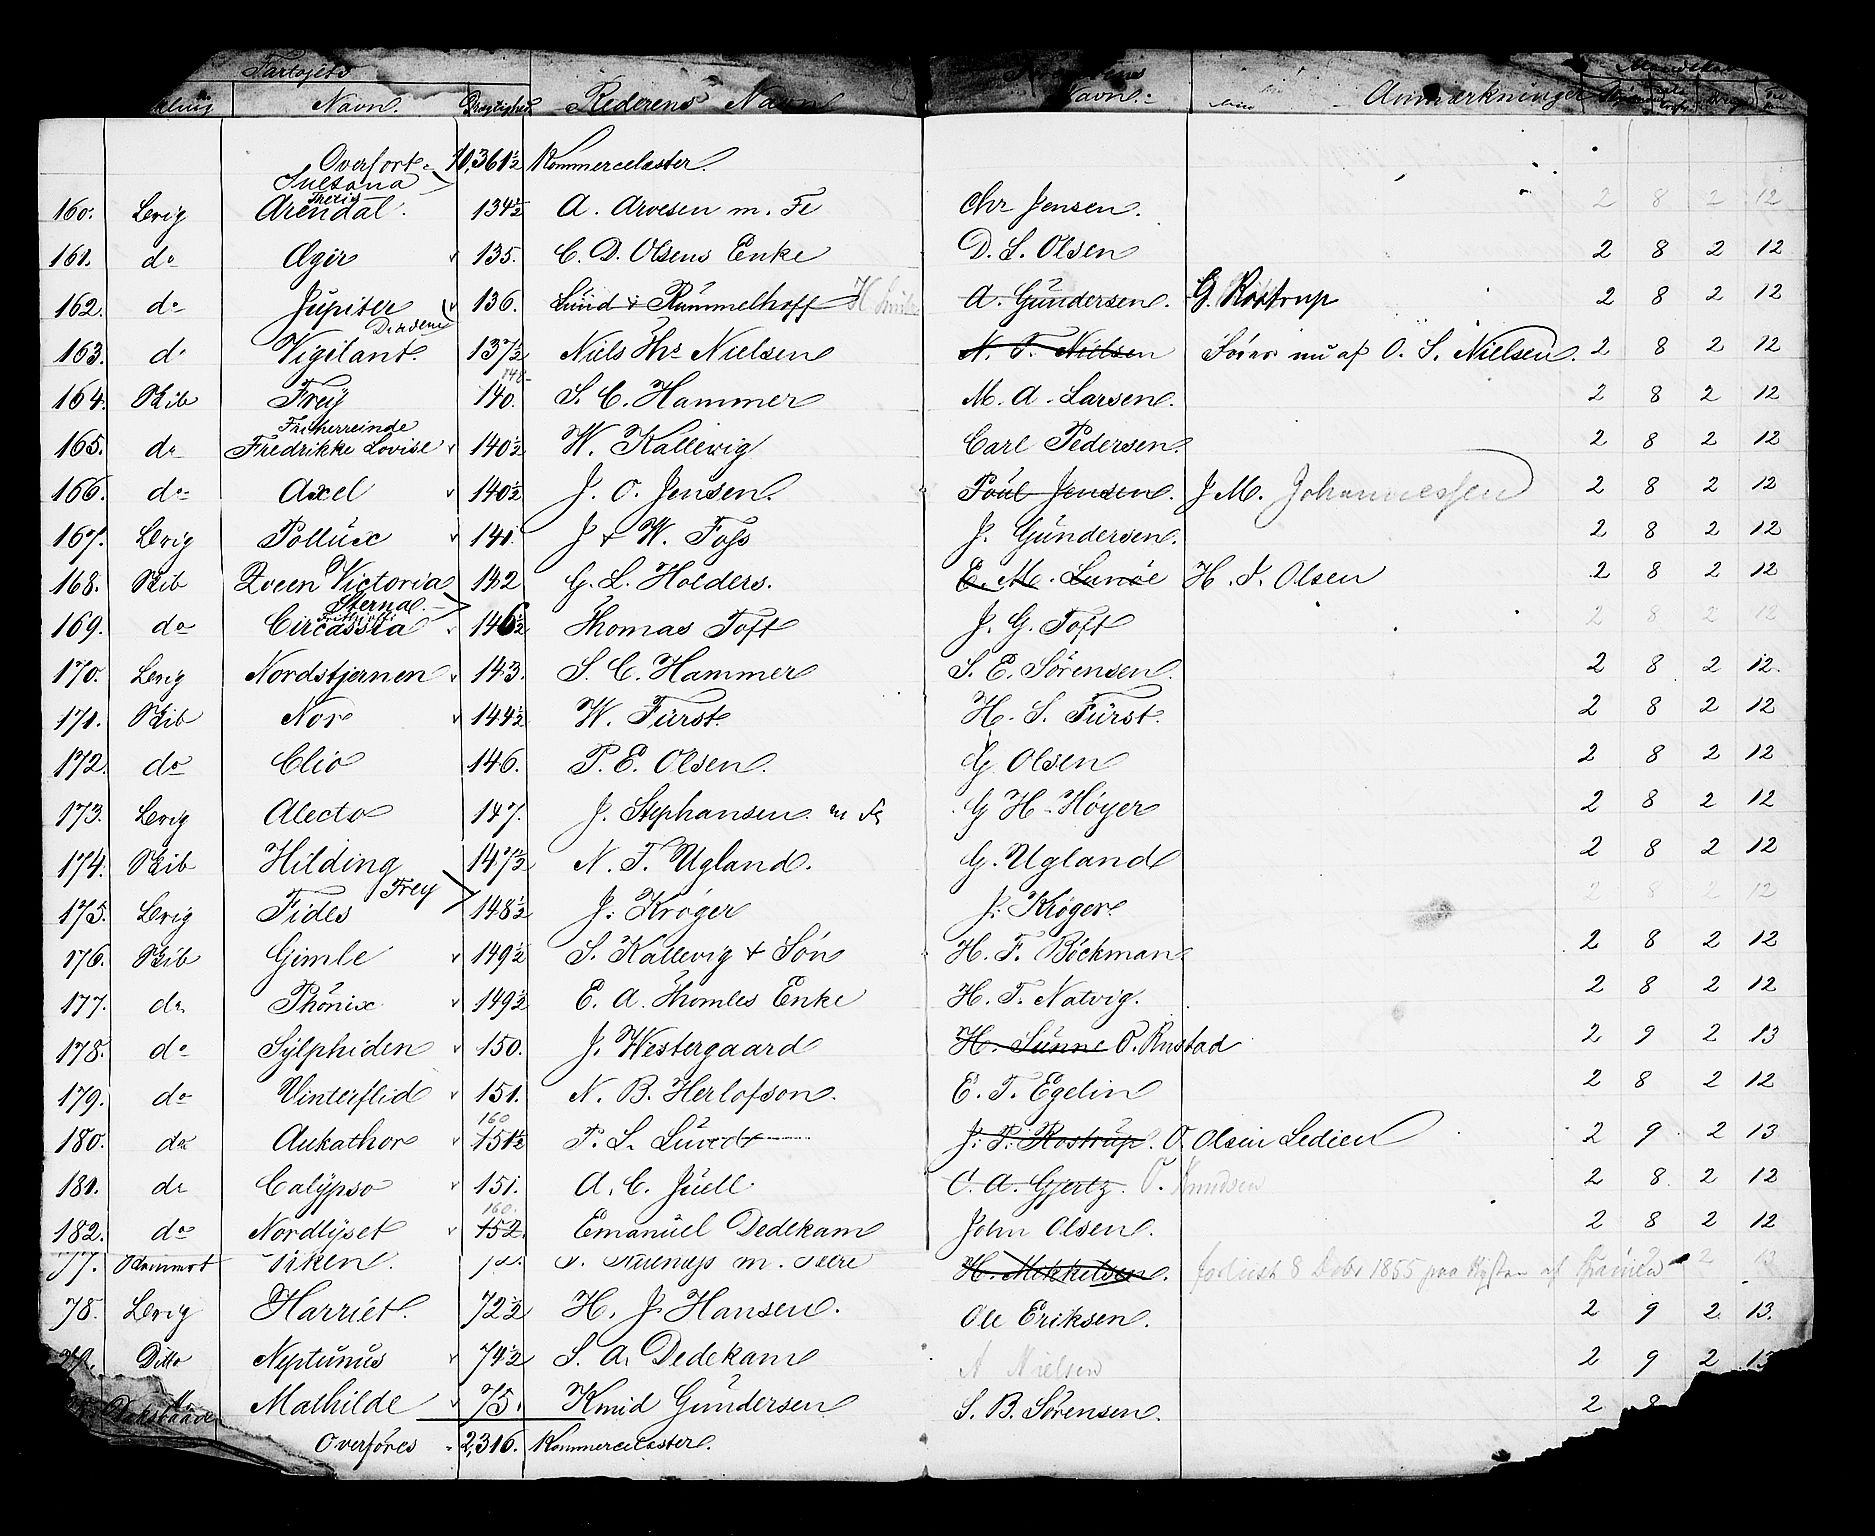 Fartøjets
Navn. Drægtighed Rederens Navn Navn. Anmærkninger
Overført 10,361½ Kommercelæster.
Susana
Thetis
160. Brig Arendal. 134½ A. Arvesen m. Fl Chr Jensen. 2 8 2 12
161. do Ægir 135. C. D. Olsens Enke D. L. Olsen 2 8 2 12
162. do Jupiter 136. Lund & Rummelhoff H A. Gundersen. G. Rostrup 2 8 2 12
163. do Vigilant. 137½ Niels Ths Nielsen N. T. Nielsen Føres nu af O. S. Nielsen. 2 8 2 12
148
164. Skib Frey 140. S. C. Hammer M. A. Larsen. 2 8 2 12
Friherreinde
165. do Fredrikke Lovise 140½ W. Kallevig Carl Pedersen. 2 8 2 12
166. do Axel 140½ J. O. Jensen. Poul Jensen. J M. Johannessen 2 8 2 12
167. Brig Pollux 141. J & W. Foss J. Gundersen. 2 8 2 12
168. Skib Qveen Victoria 142 G. L. Holders. E. M. Lunöe H. T. Olsen 2 8 2 12
Sterna
169. do Circassia 146½ Thomas Toft J. G. Toft 2 8 2 12
170. Brig Nordstjernen 143. S. C. Hammer S. E. Sörensen. 2 8 2 12.
171. Skib Nor 144½ W. Fürst. H. S. Fürst. 2 8 2 12
172. do Clio 146. P. E. Olsen. G Olsen 2 8 2 12
173. Brig Alecto 147. J. Stephansen m Fl G H. Höyer 2 8 2 12
174. Skib Hilding 147½ N. T. Ugland. G. Ugland 2 8 2 12
Frey
175. Brig Fides 148½ J. Kröger J. Kröger 2 8 2 12
176. Skib Gimle 149½ S. Kallevig & Sön H. F. Böckman 2 8 2 12
177. do Phönix 149½ E. A. Thomles Enke H. T. Natvig. 2 8 2 12
178. do Sylphiden 150. J. Westergaard H. Sunne O. Rustad 2 9 2 13
179. do Vinterflid 151. N. B. Herlofson. E. T. Egelin 2 8 2 12
160
180. do Aukathor 151½ P. L. Luvedt J. P. Rostrup. O. Olsin Ledien 2 9 2 13
181. do Calypso 151. A. C. Juell. C. A. Gjertz. O. Knudsen 2 8. 2 12
160.
182. do Nordlyset 152. Emanuel Dedekam John Olsen. 2 8 2 12
77. H. Mikkelsen. forliist 8 Dbr 1855 paa Kysten af 2 12
78. Brig Harriet. 72½ H. J. Hansen. Ole Eriksen. 2 9 2 13.
79. Ditto Neptunus 74½ S. A. Dedekam A Nielsen 2 9 2 13
Mathilde 75. Knud Gundersen S. B. Sörensen. 2
Overföres 2,316. Kommercelæster.